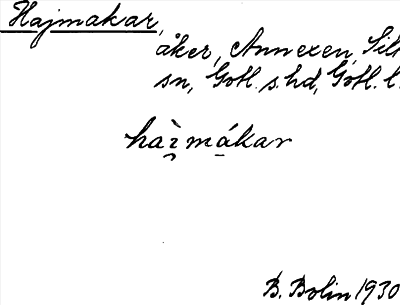 Hajmakar,
åker, Annexen, Silt
sn, Gotl. s. hd, Gotl. l.
hàı̯mákar
B. Bolin 1930